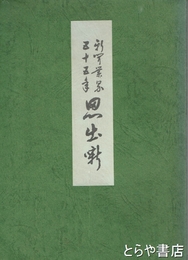 新聞業界
五十五年
思出噺
とらや書店